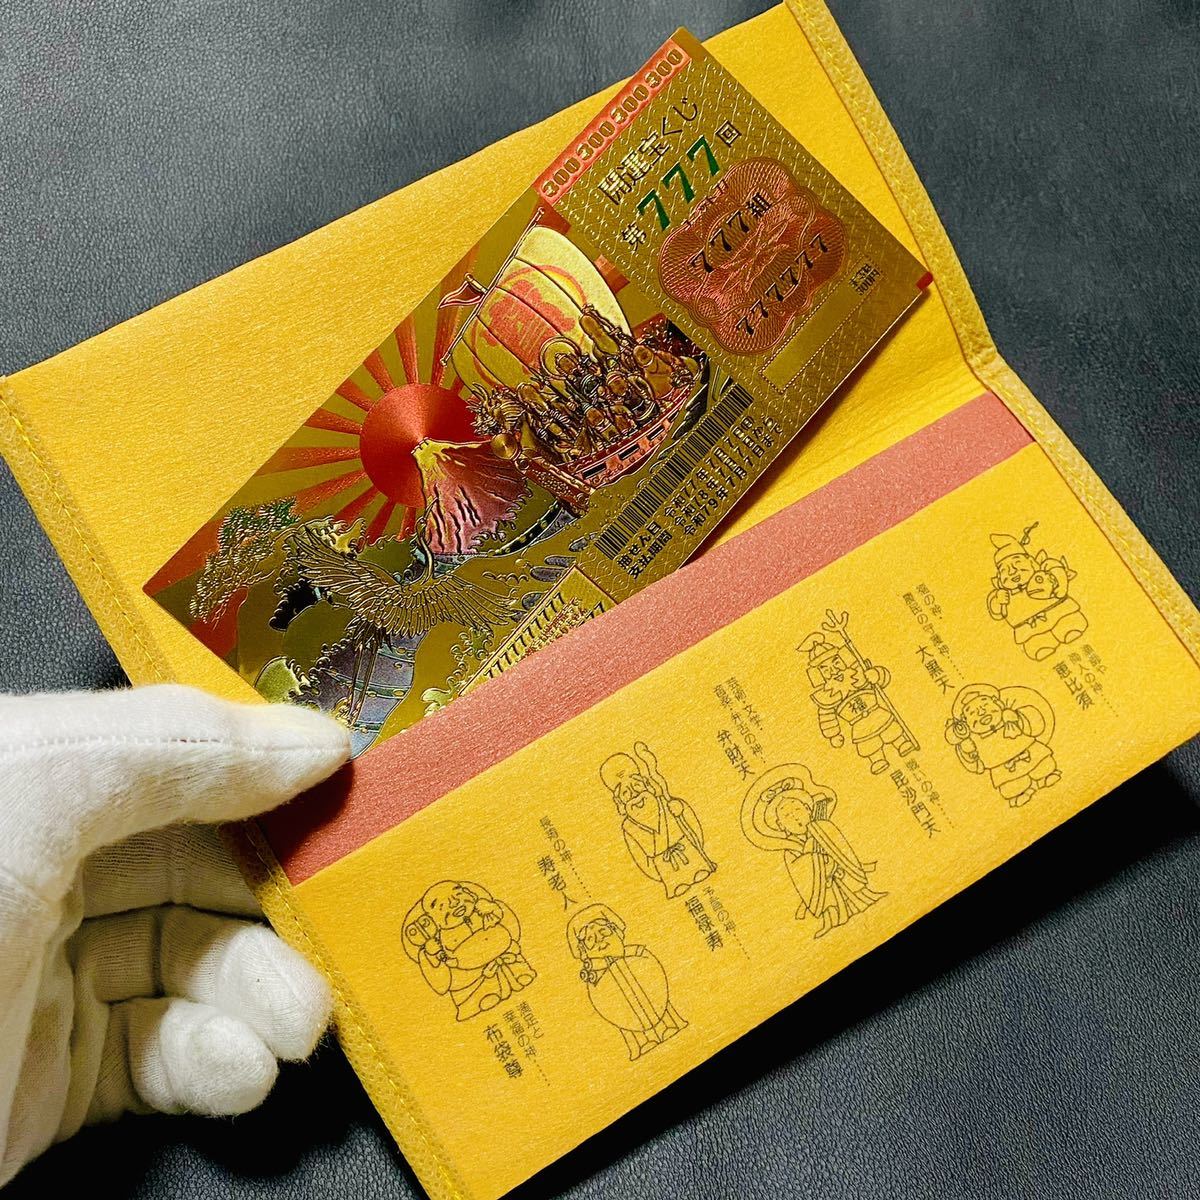 300 300 300 300
開運宝くじ
第777回
777組
777777
抽せん日 令和77年7月7日
支払期間 令和78年7月7日から
令和79年7月7日まで
777777777
商売の神、
商人の神……
恵比須
福の神、
農民の守護神……
大黒天
戦いの神……
毘沙門天
福
芸術・文学・
音楽・弁舌の神……
弁財天
予言の神……
福禄寿
長寿の神……
寿老人
満足と
幸福の神……
布袋尊